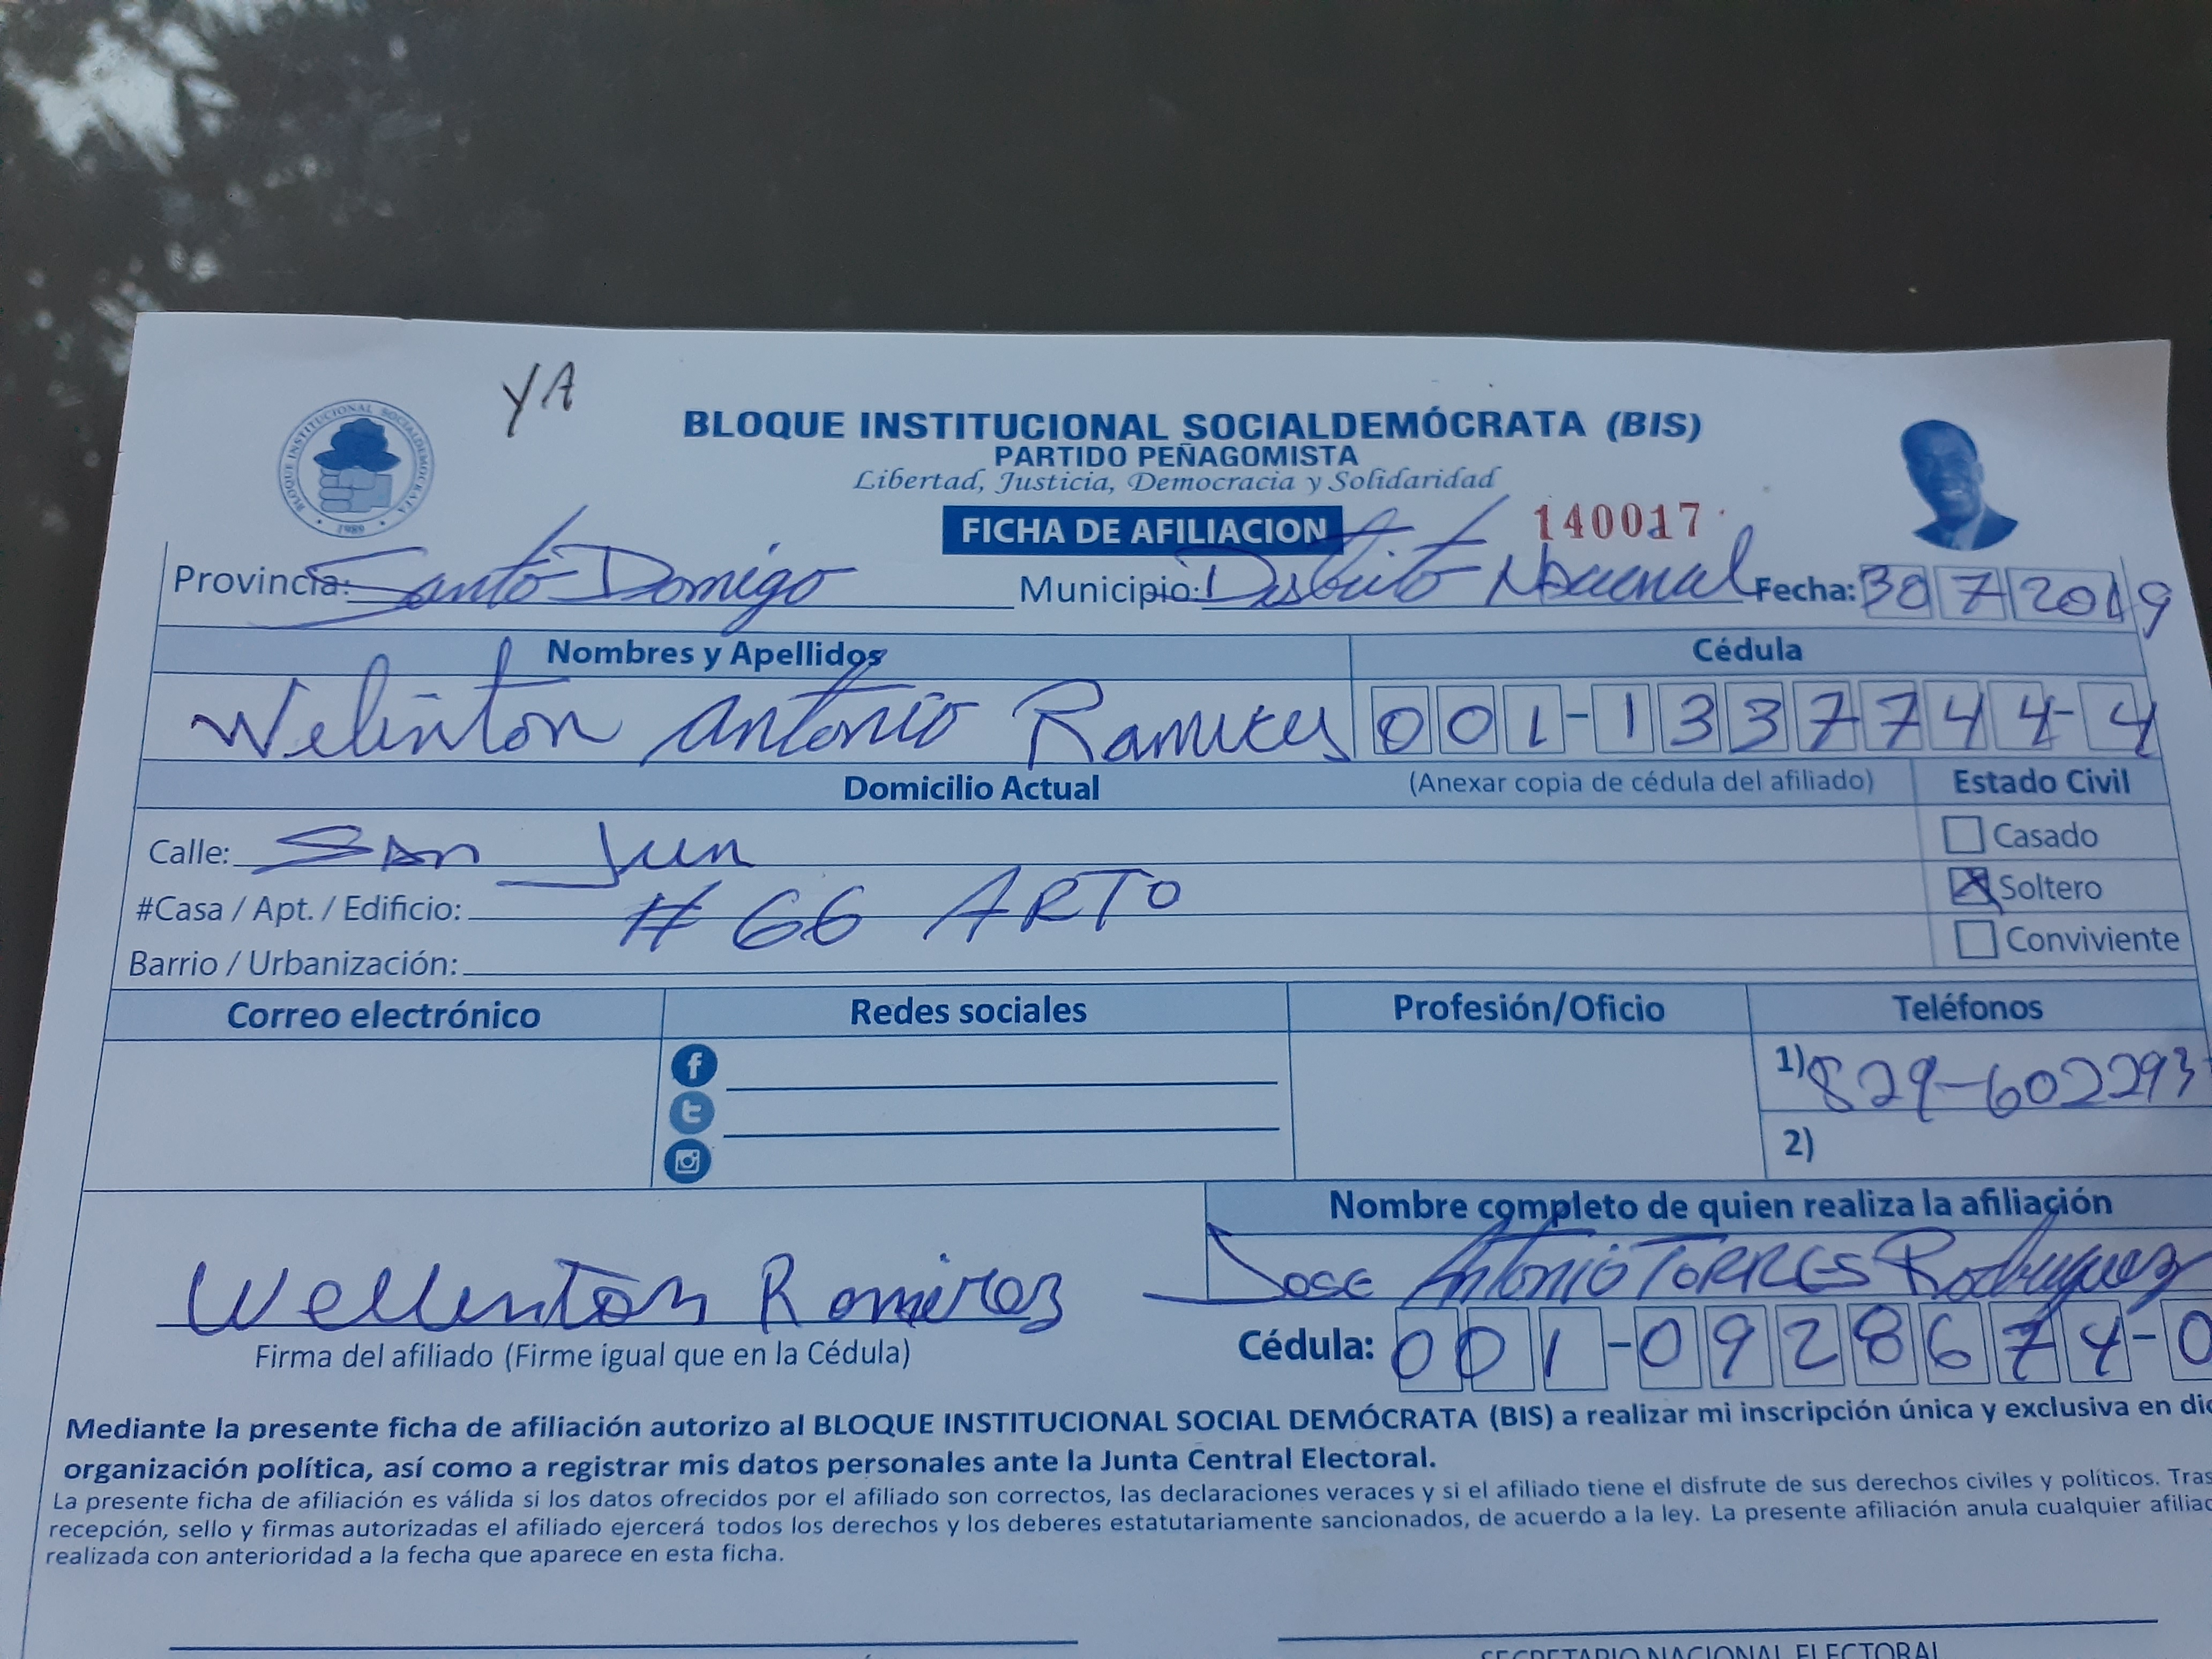 YA
BLOQUE INSTITUCIONAL SOCIALDEMÓCRATA (BIS)
PARTIDO PEÑAGOMISTA
Libertad, Justicia, Democracia y Solidaridad
BLOQUE INSTITUCIONAL SOCIALDEMOCRATA
1989
FICHA DE AFILIACION 140017
Provincia: Santo Domigo Municipio: Distrito Nacional Fecha: 30 7 2019
Nombres y Apellidos Cédula
Welinton Antonio Ramires 001-1337744-4
Domicilio Actual (Anexar copia de cédula del afiliado) Estado Civil
Calle: SAn Jun Casado
#Casa / Apt. / Edificio: # 66 ARTO Soltero
Barrio / Urbanización: Conviviente
Correo electrónico Redes sociales Profesión/Oficio Teléfonos
1) 829-602293
2)
Nombre completo de quien realiza la afiliación
Jose Antonio TORRES Rodriguez
Wellinton Ramirez
Cédula: 001-0928674-0
Firma del afiliado (Firme igual que en la Cédula)
Mediante la presente ficha de afiliación autorizo al BLOQUE INSTITUCIONAL SOCIAL DEMÓCRATA (BIS) a realizar mi inscripción única y exclusiva en dic
organización política, así como a registrar mis datos personales ante la Junta Central Electoral.
La presente ficha de afiliación es válida si los datos ofrecidos por el afiliado son correctos, las declaraciones veraces y si el afiliado tiene el disfrute de sus derechos civiles y políticos. Tras
recepción, sello y firmas autorizadas el afiliado ejercerá todos los derechos y los deberes estatutariamente sancionados, de acuerdo a la ley. La presente afiliación anula cualquier afiliac
realizada con anterioridad a la fecha que aparece en esta ficha.
SECRETARIO NACIONAL ELECTORAL